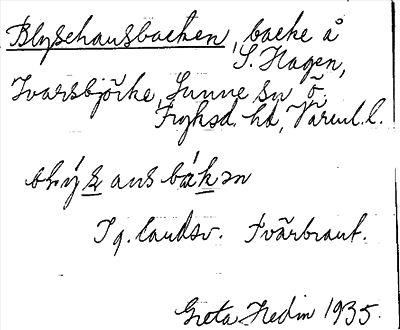 Blyschansbacken, backe å
S. Hagen,
Ivarsbjörke, Sunne sn ö.
Fryksd. hd, Värml. l.
ansbåkən
Ig. landsv. Tvärbrant.
Greta Hedin 1935.